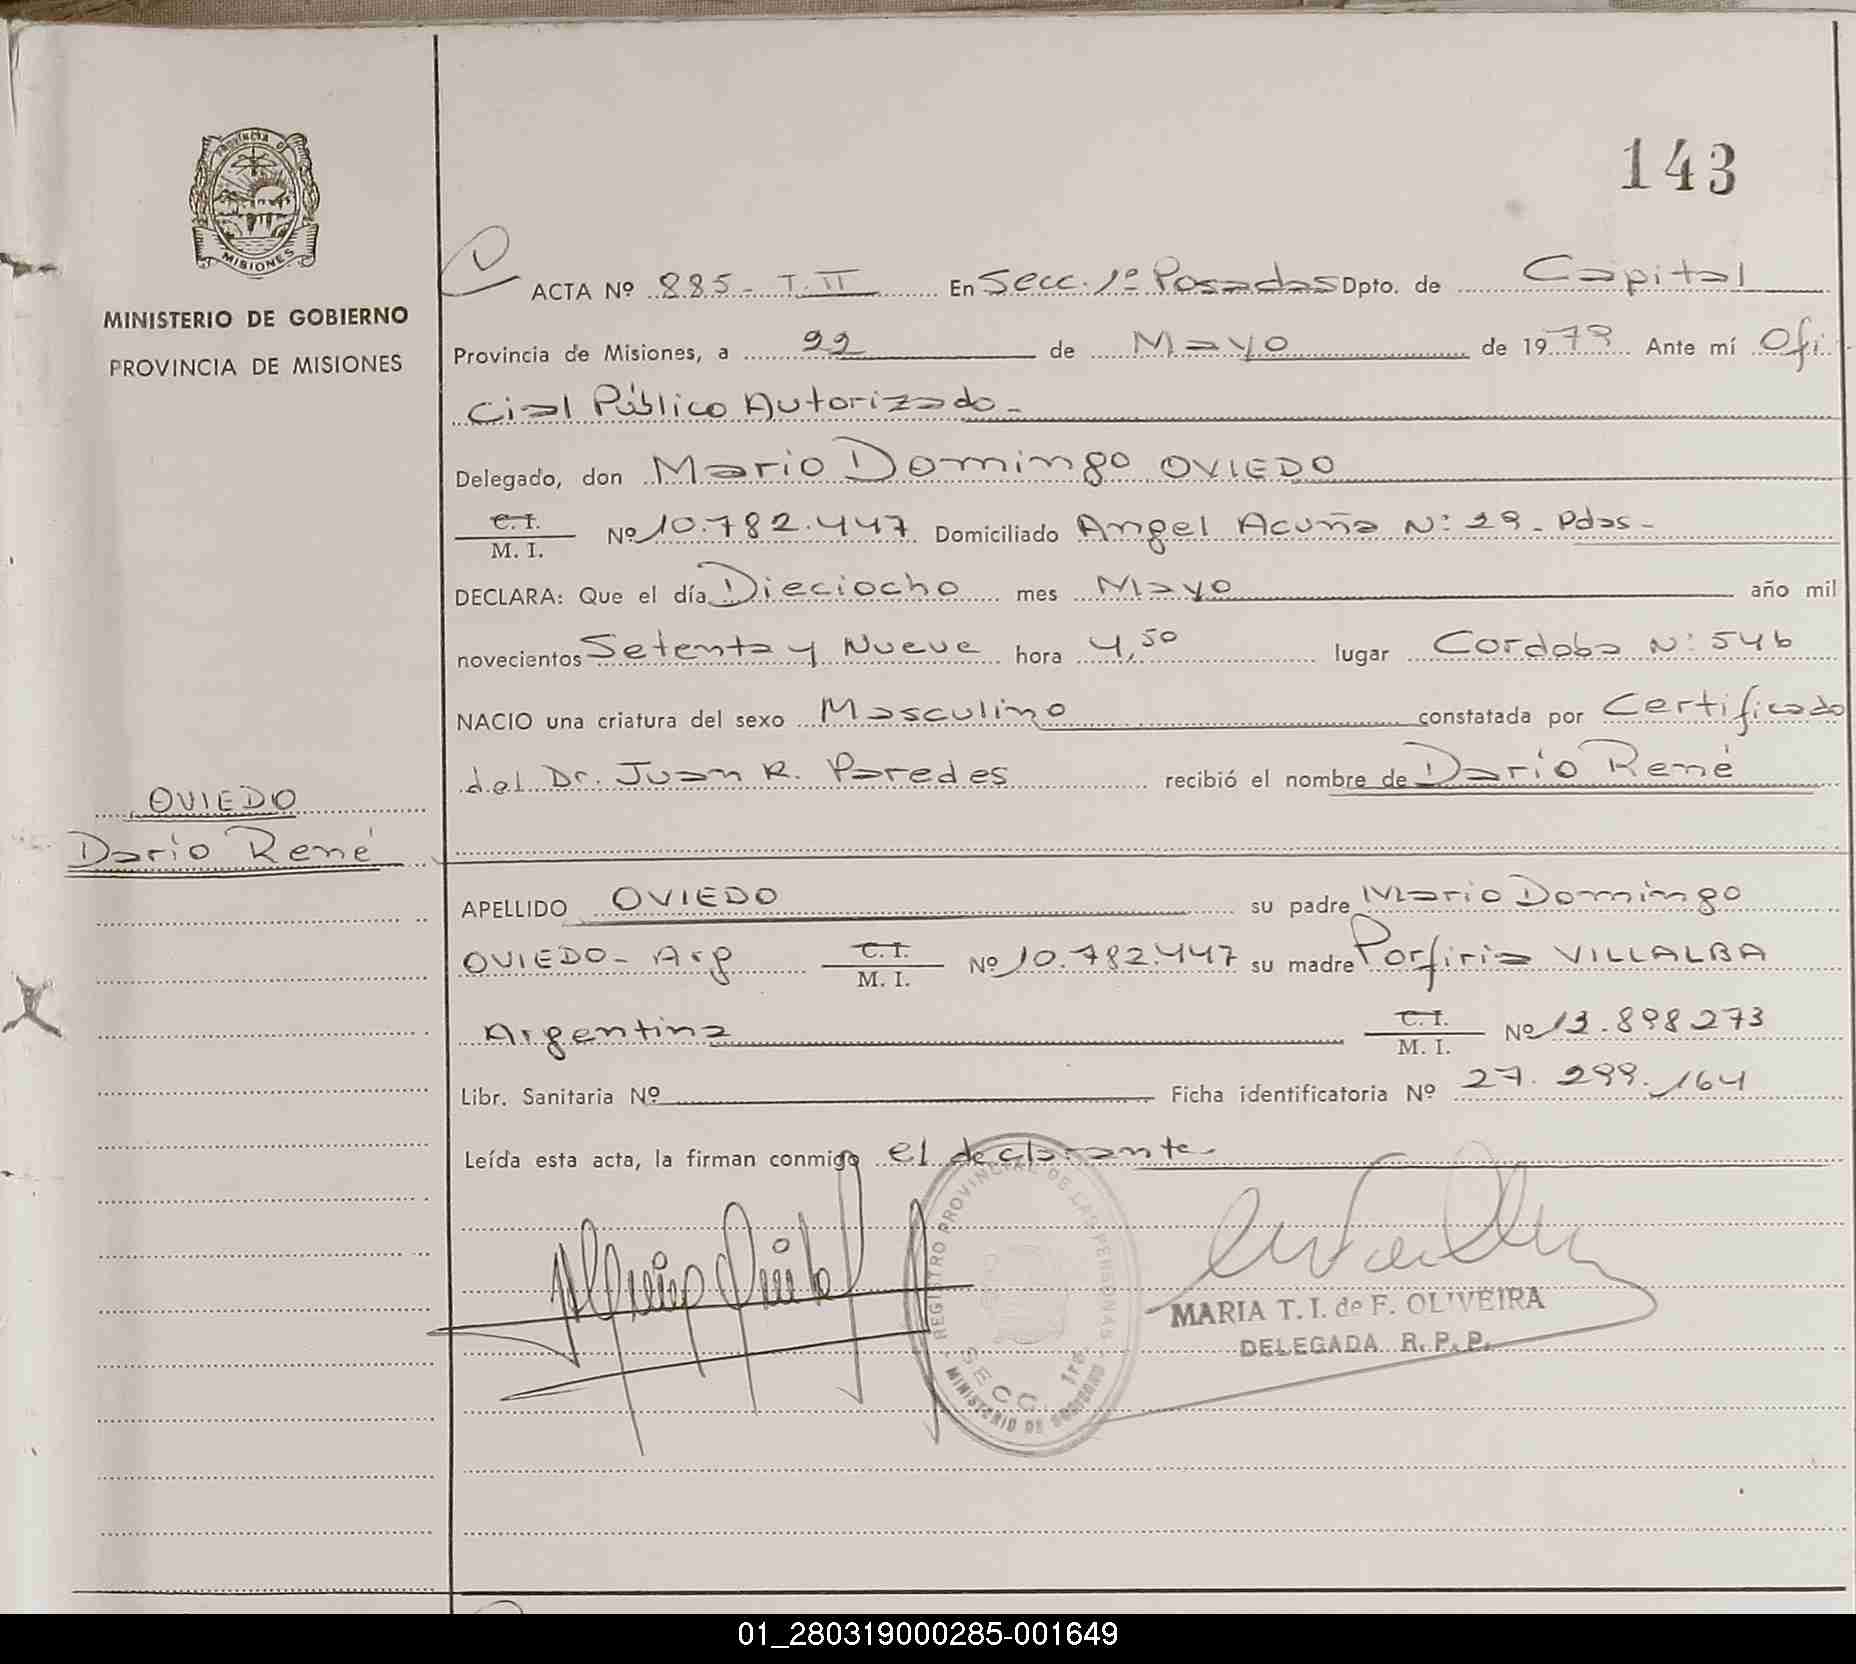 143
PROVINCIA DE
MISIONES
MINISTERIO DE GOBIERNO
PROVINCIA DE MISIONES
ACTA Nº 885 - T. II En Secc. 1º Posadas Dpto. de Capital
Provincia de Misiones, a 22 de Mayo de 1979 Ante mí Ofi
cial Público Autorizado -
Delegado, don Mario Domingo OVIEDO
C. I.
M. I. Nº 10.782.447 Domiciliado Angel Acuña Nº 29 - Pdas -
DECLARA: Que el día Dieciocho mes Mayo año mil
novecientos Setenta y Nueve hora 4,50 lugar Cordoba Nº 546
NACIO una criatura del sexo Masculino constatada por Certificado
del Dr. Juan R. Paredes recibió el nombre de Darío René
OVIEDO
Darío René
APELLIDO OVIEDO su padre Mario Domingo
OVIEDO - Arg C. I.
M. I. Nº 10.782.447 su madre Porfiria VILLALBA
Argentina C. I.
M. I. Nº 13.898.273
Libr. Sanitaria Nº Ficha identificatoria Nº 27.299.164
Leída esta acta, la firman conmigo el declarante -
REGISTRO PROVINCIAL DE LAS PERSONAS
SECC. 1ra.
MINISTERIO DE GOBIERNO
MARIA T. I. de F. OLIVEIRA
DELEGADA R. P. P.
01_280319000285-001649